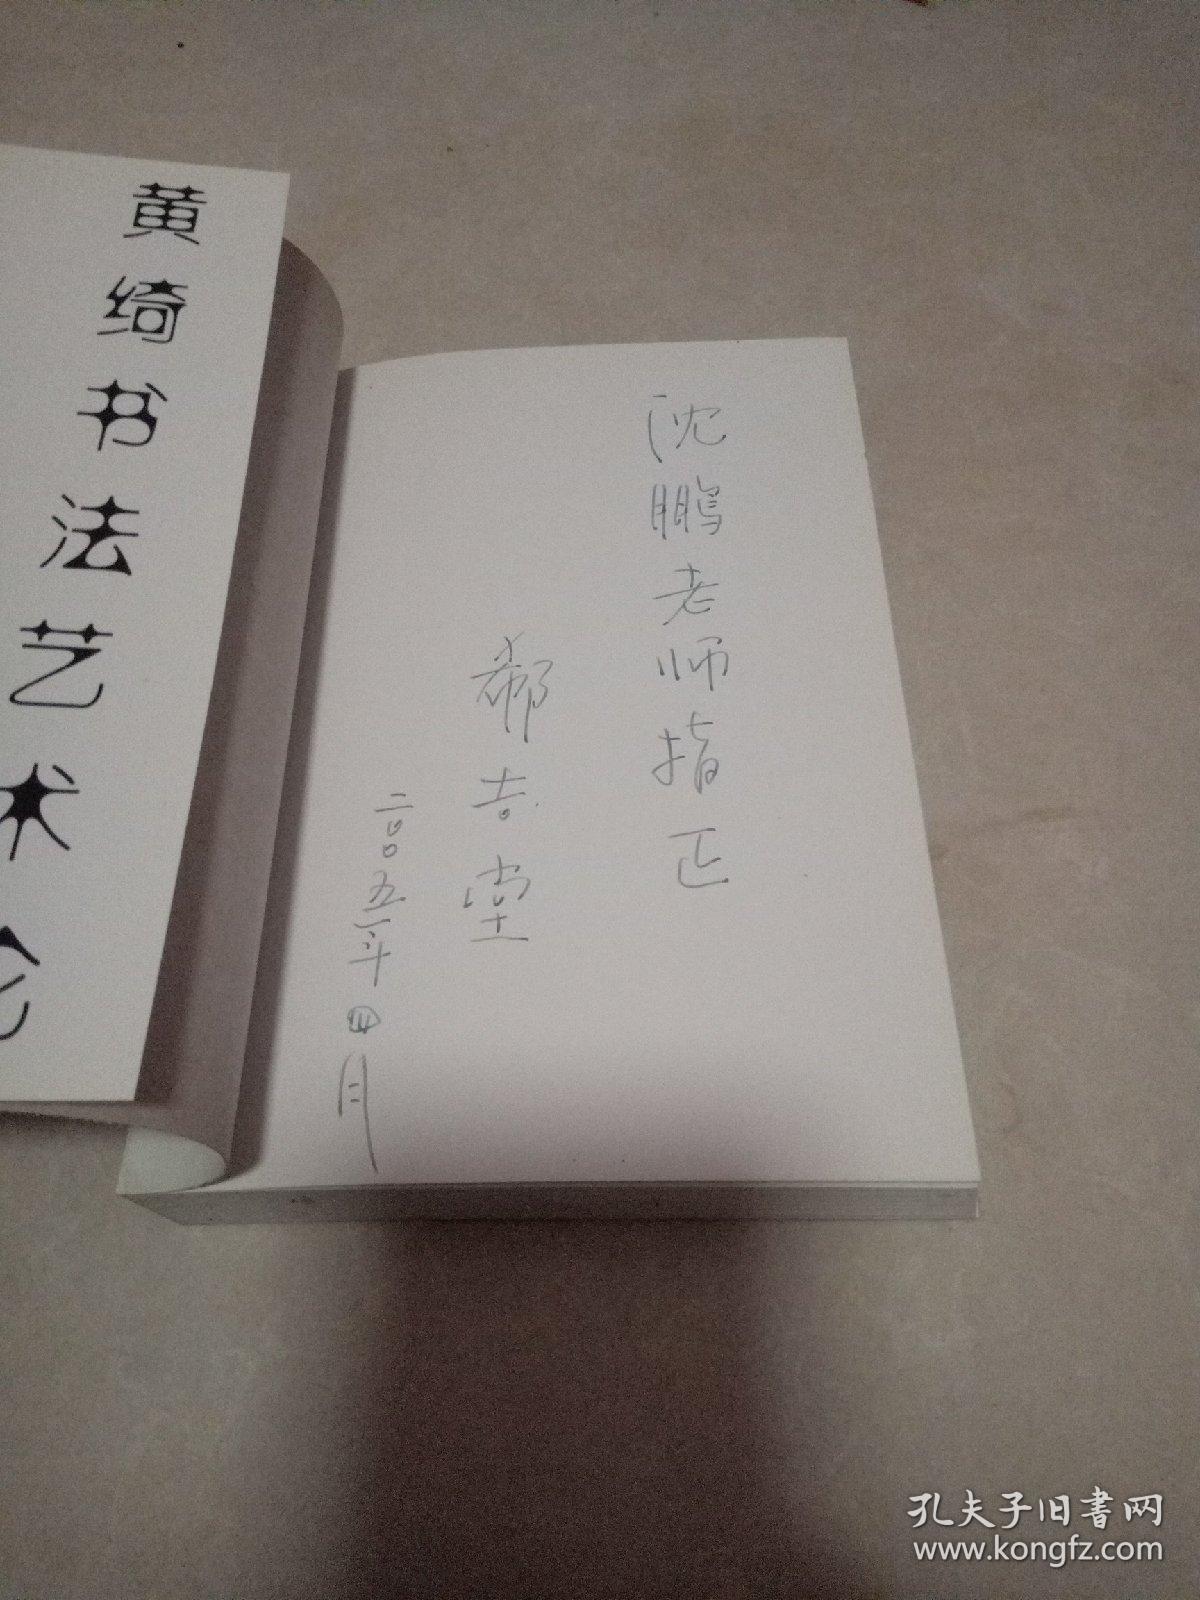 黄绮书法艺术论
沈鹏老师指正
郗吉堂
二〇〇五年四月
孔夫子旧書网
www.kongfz.com